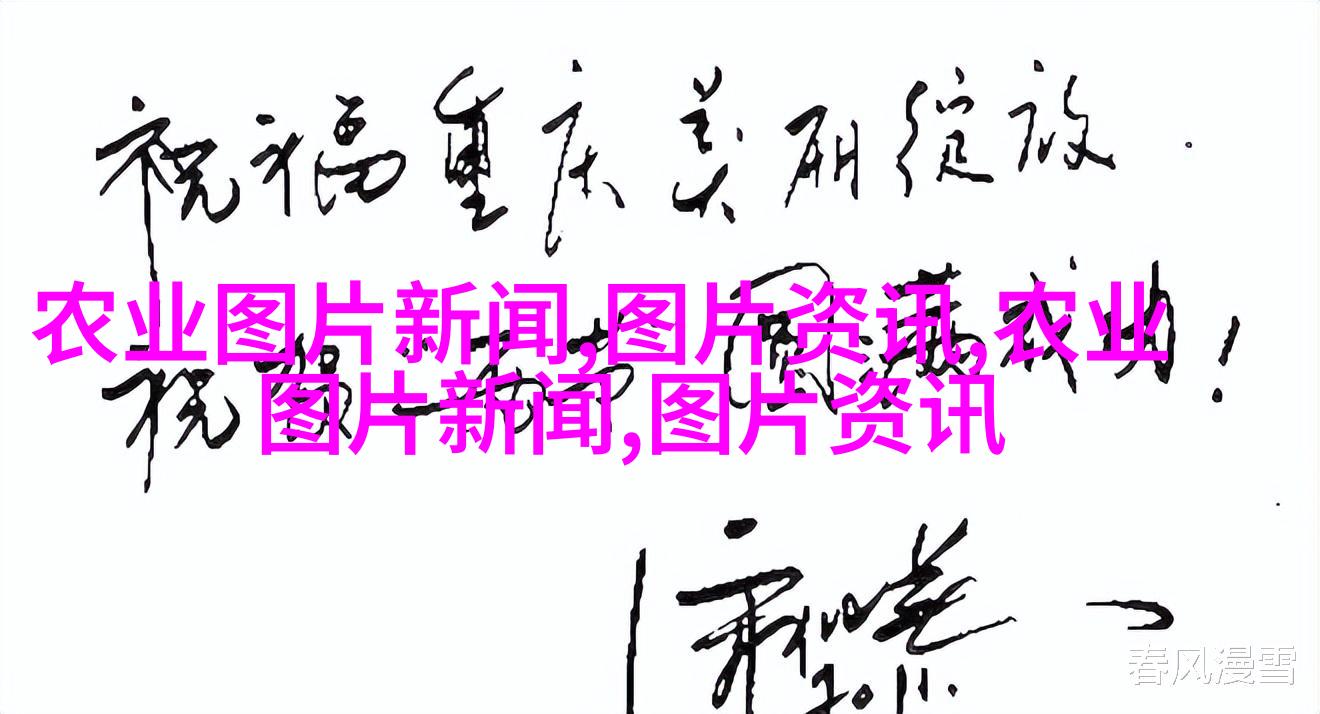 祝福重庆美丽绽放.
农业图片新闻,图片资讯,农业
图片新闻,图片资讯
祝 圆满成功!
2011.
春风漫雪